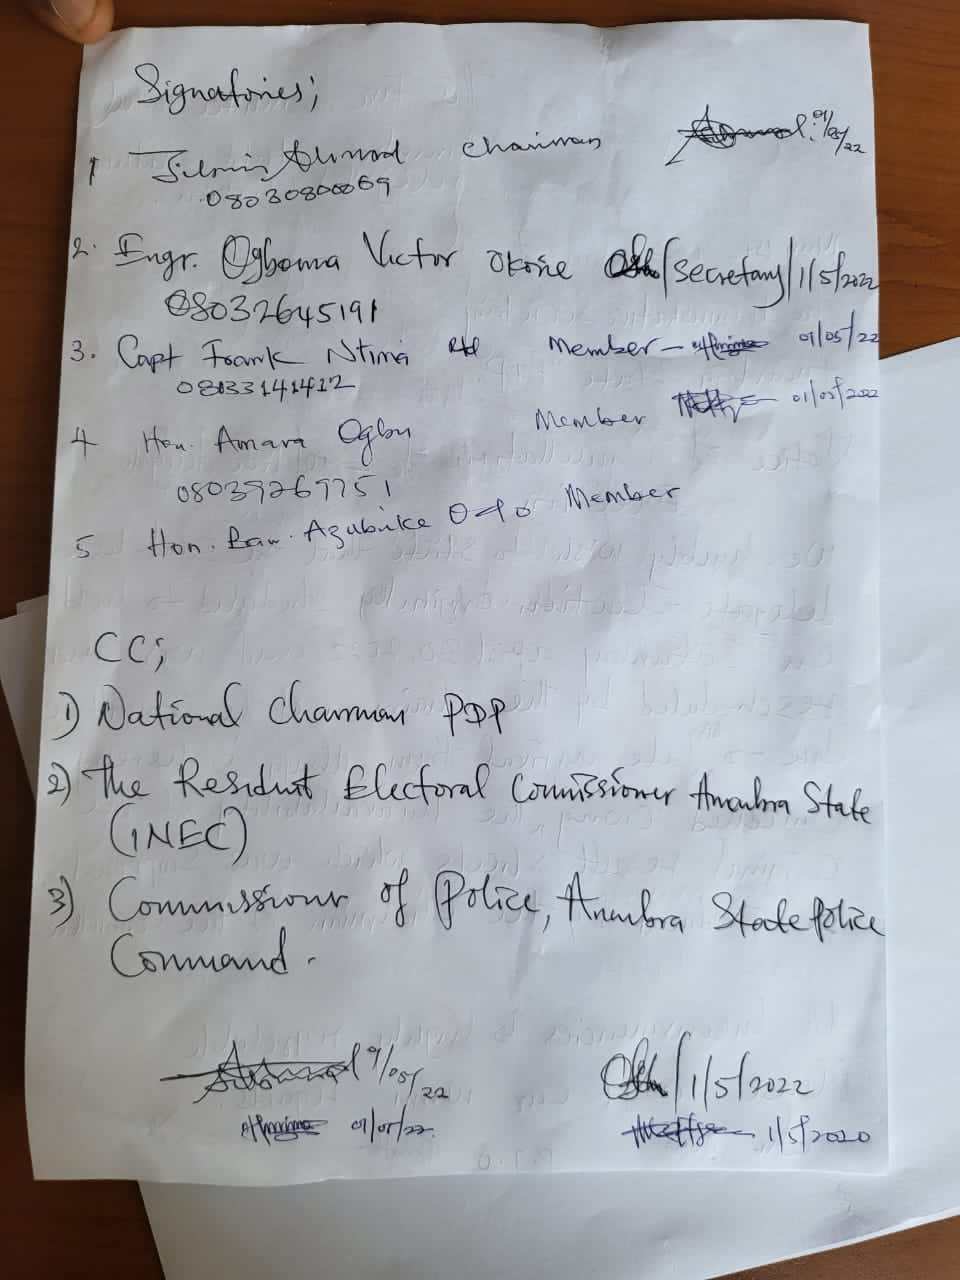 Signatories;
1 Ahmad Chairman 01/05/22
08030800069
2. Engr. Ogboma Victor Okorie /Secretary/1/5/2022
08032645191
3. Capt Frank Ntimi Rtd Member- 01/05/22
08033141412
4 Hon. Amara Ogbu Member 01/05/2022
08039269751
5 Hon. Azubuike Member
CC;
1) National Chairman PDP
2) The Resident Electoral Commissioner Anambra State
(INEC)
3) Commissioner of Police, Anambra State police
Command.
9/05/22 /1/5/2022
01/05/22. 1/5/2020